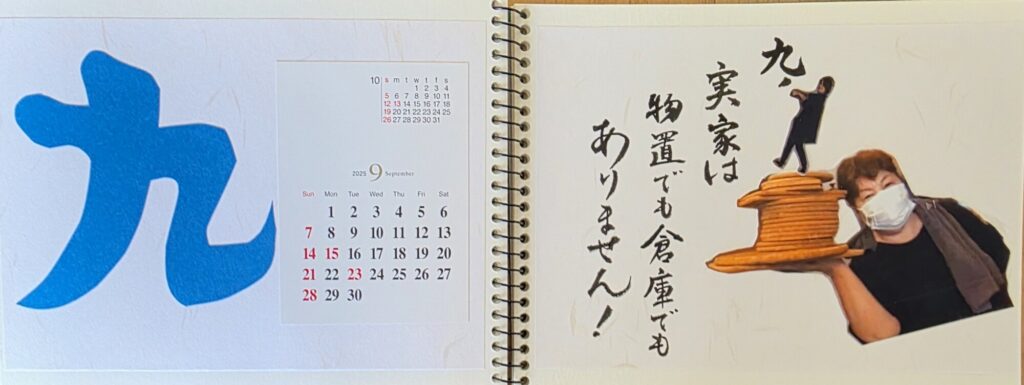 九
10 s m t w t f s
1 2 3 4
5 6 7 8 9 10 11
12 13 14 15 16 17 18
19 20 21 22 23 24 25
26 27 28 29 30 31
2025 9 September
Sun Mon Tue Wed Thu Fri Sat
1 2 3 4 5 6
7 8 9 10 11 12 13
14 15 16 17 18 19 20
21 22 23 24 25 26 27
28 29 30
九、
実家は
物置でも倉庫でも
ありません!